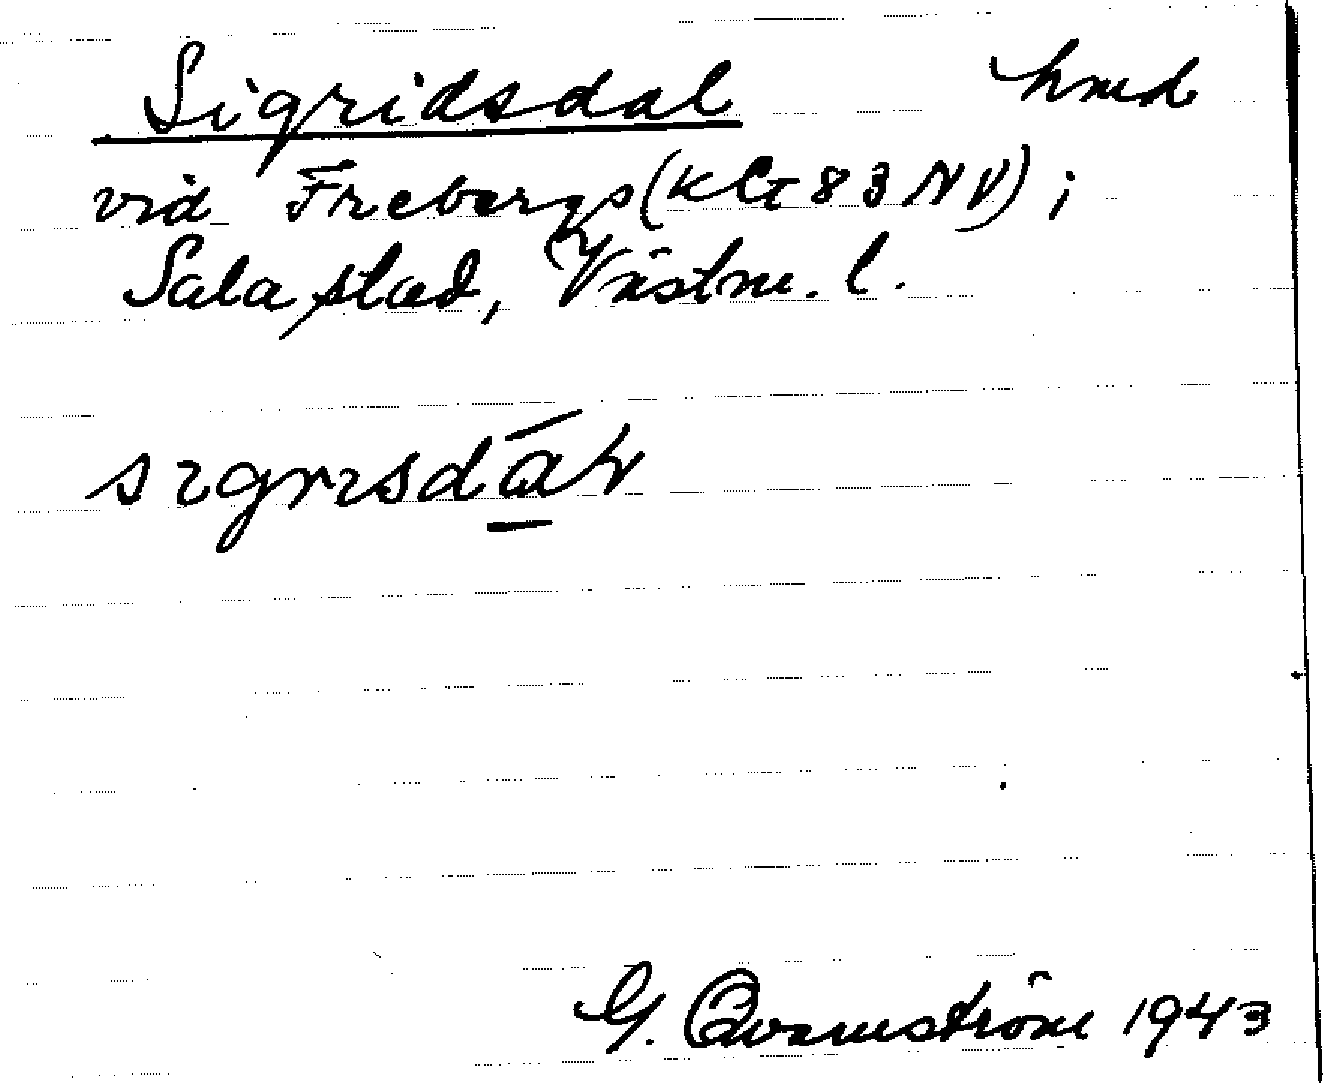 Sigridsdal hmd
vid Frebergs (Kbl 83 NV) i
Sala stad, Västm. l.
sɪgrɪsdɑ́ɫ
G. Qvarnström 1943